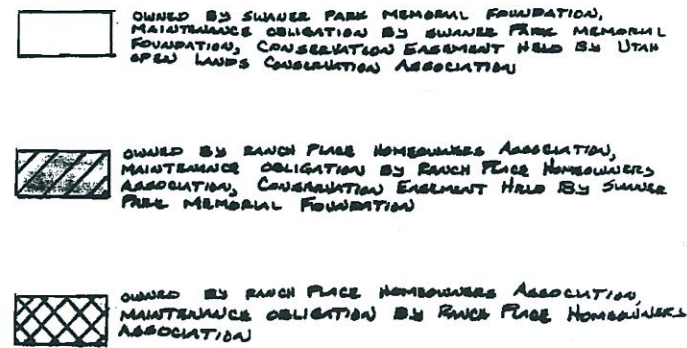 OWNED BY SWANER PARK MEMORIAL FOUNDATION,
MAINTENANCE OBLIGATION BY SWANER PARK MEMORIAL
FOUNDATION, CONSERVATION EASEMENT HELD BY UTAH
OPEN LANDS CONSERVATION ASSOCIATION
OWNED BY RANCH PLACE HOMEOWNERS ASSOCIATION,
MAINTENANCE OBLIGATION BY RANCH PLACE HOMEOWNERS
ASSOCIATION, CONSERVATION EASEMENT HELD BY SWANER
PARK MEMORIAL FOUNDATION
OWNED BY RANCH PLACE HOMEOWNERS ASSOCIATION,
MAINTENANCE OBLIGATION BY RANCH PLACE HOMEOWNERS
ASSOCIATION